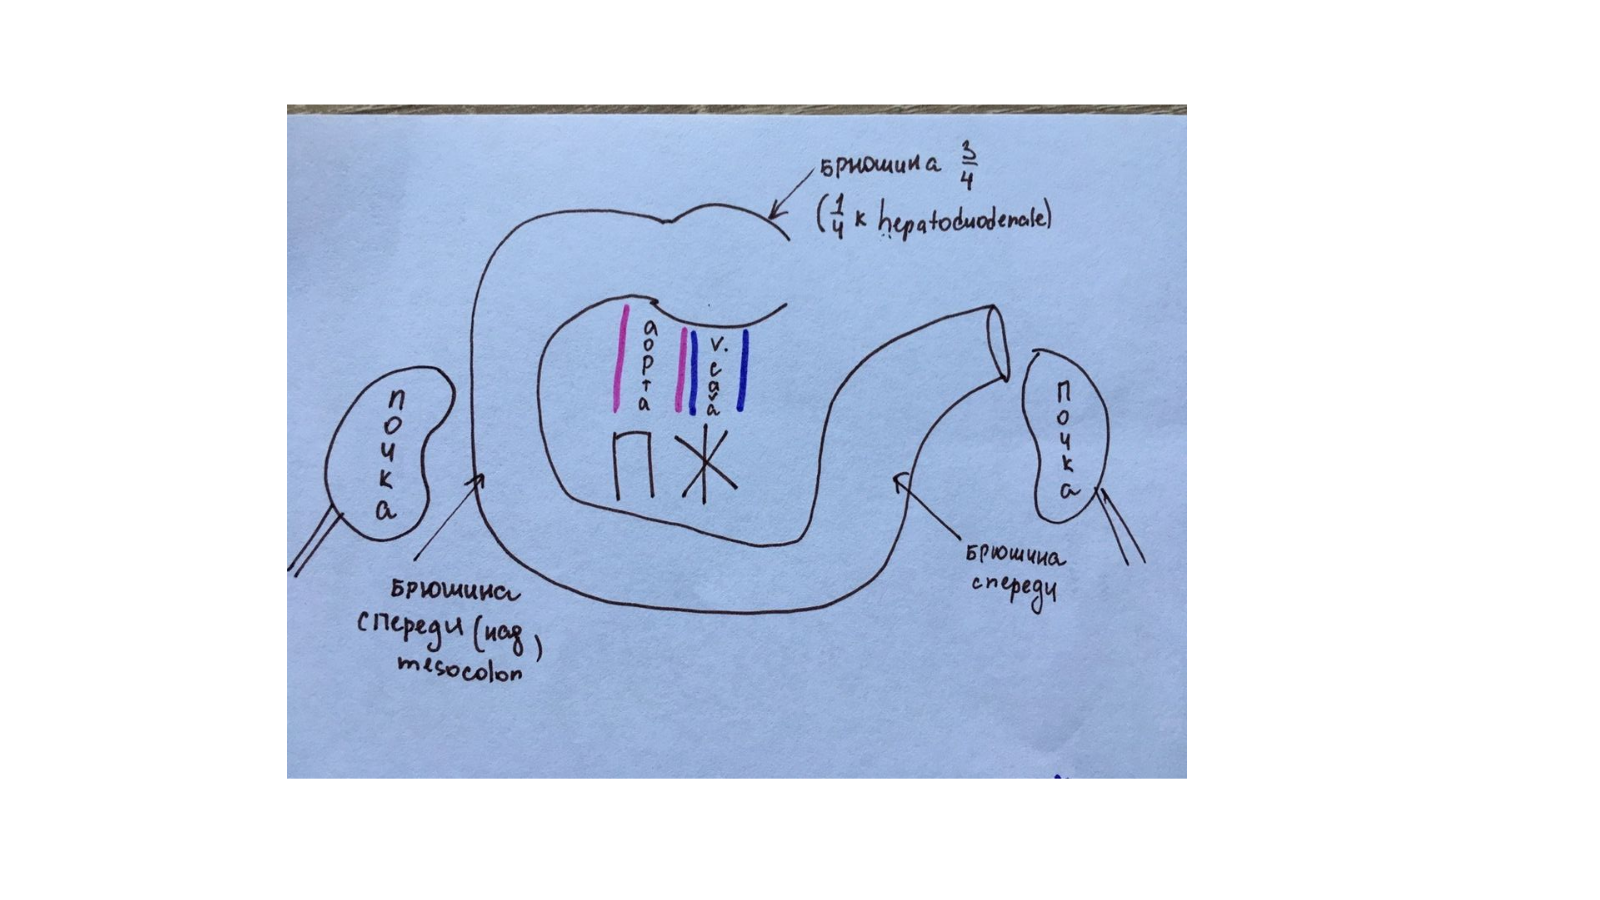 Брюшина 3/4
(1/4 к hepatoduodenale)
аорта
v. cava
почка
почка
П Ж
Брюшина
спереди
Брюшина
спереди (над)
mesocolon